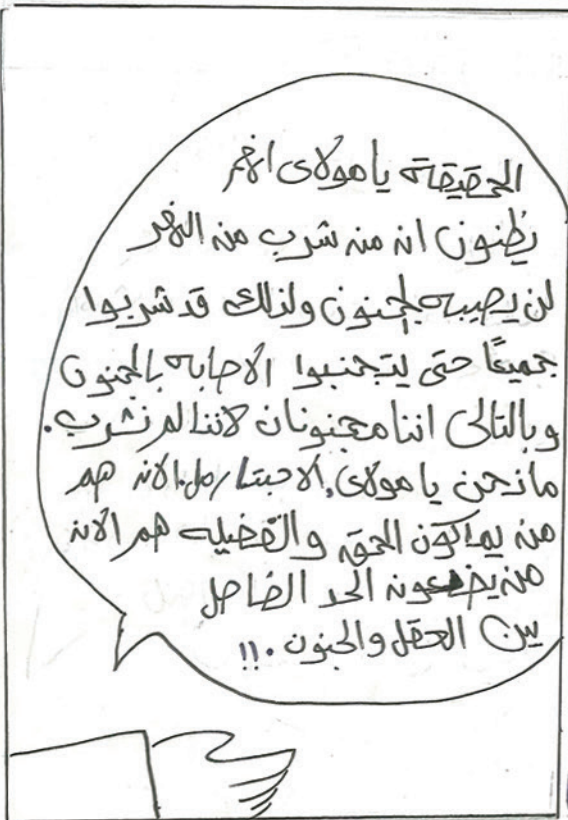 الحقيقة يا مولاى انهم
يظنون ان من شرب من النهر
لن يصيبه الجنون ولذلك قد شربوا
جميعًا حتى يتجنبوا الاصابه بالجنون
وبالتالى اننا مجنونان لاننا لم نشرب.
ما نحن يا مولاى الا حبتا رمل الان هم
من يملكون الحق والفضيله هم الان
من يضعون الحد الفاصل
بين العقل والجنون..!!